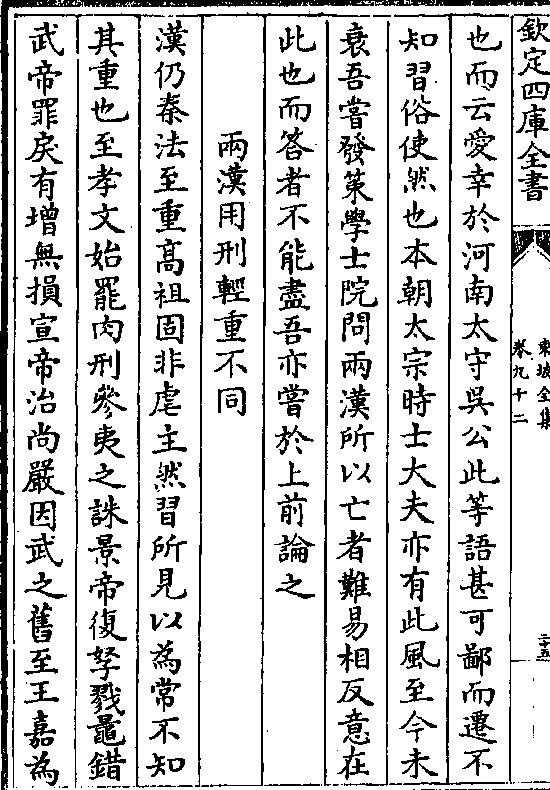 欽定四庫全書
東坡全集
卷九十二
二十五
也而云愛幸於河南太守吳公此等語甚可鄙而遷不
知習俗使然也本朝太宗時士大夫亦有此風至今未
衰吾嘗發策學士院問兩漢所以亡者難易相反意在
此也而答者不能盡吾亦嘗於上前論之
兩漢用刑輕重不同
漢仍秦法至重髙祖固非虐主然習所見以為常不知
其重也至孝文始罷肉刑參夷之誅景帝復孥戮鼂錯
武帝罪戾有增無損宣帝治尚嚴因武之舊至王嘉為